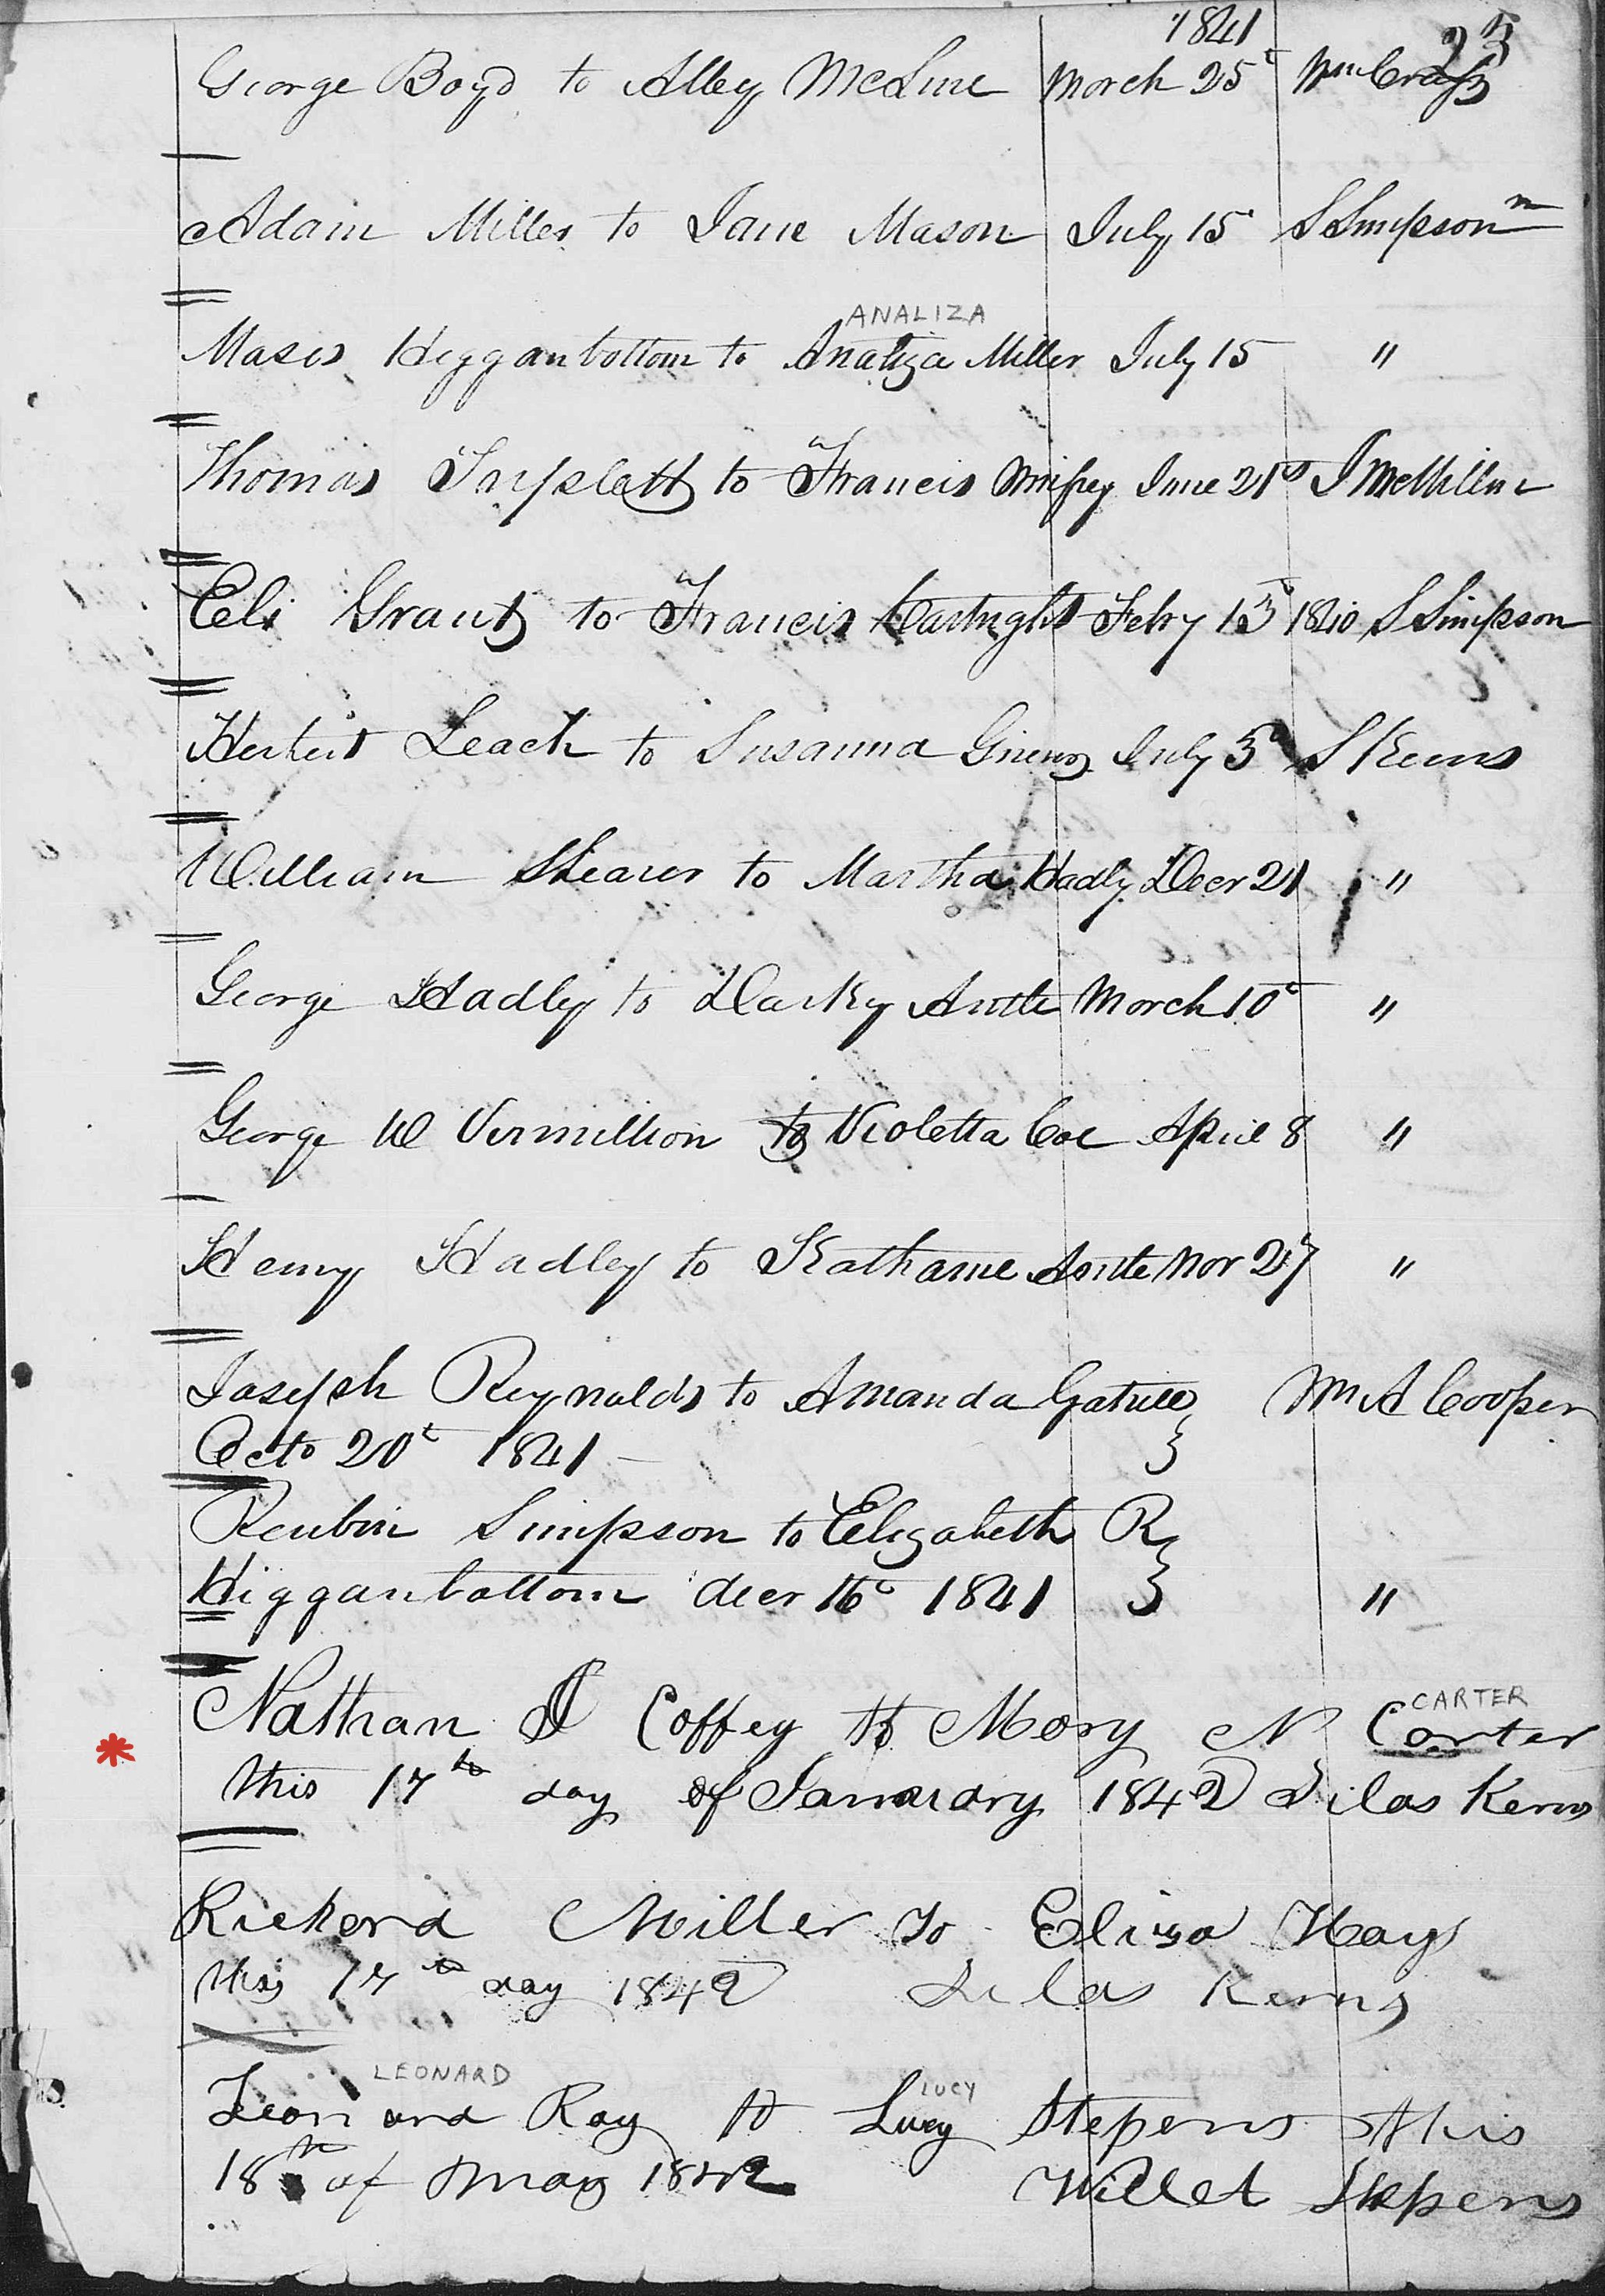 1841
25
George Boyd to Alley McLine March 25t Wm Craff
Adam Miller to Jane Mason July 15t S Simpson
ANALIZA
Moses Higganbottom to Analiza Miller July 15 "
Thomas Tripslett to Francis July June 21st J McMillin
Eli Grant to Francis Cartright Febry 13t 1840 S Simpson
Herbert Leach to Susanna July 5t S Kerns
William Shearer to Martha Hadly Decr 21 "
George Hadley to Darky Antle March 10t "
George W Vermillion to Violetta Coe Aprie 8 "
Henry Hadley to Katharine Antle Nov 27 "
Joseph Reynolds to Amanda Wm A Cooper
Octo 20t 1841
Reubin Simpson to Elizabeth R
Higganbottom decr 16t 1841 "
CARTER
Nathan J Coffey to Mary N Carter
this 17th day of January 1842 Silas Kerns
Rickerd Miller To Eliza Hays
this 17th day 1842 Silas Kerns
LEONARD LUCY
Leonard Ray to Lucy Stepens this
18th of May 1842 Willet Stepens